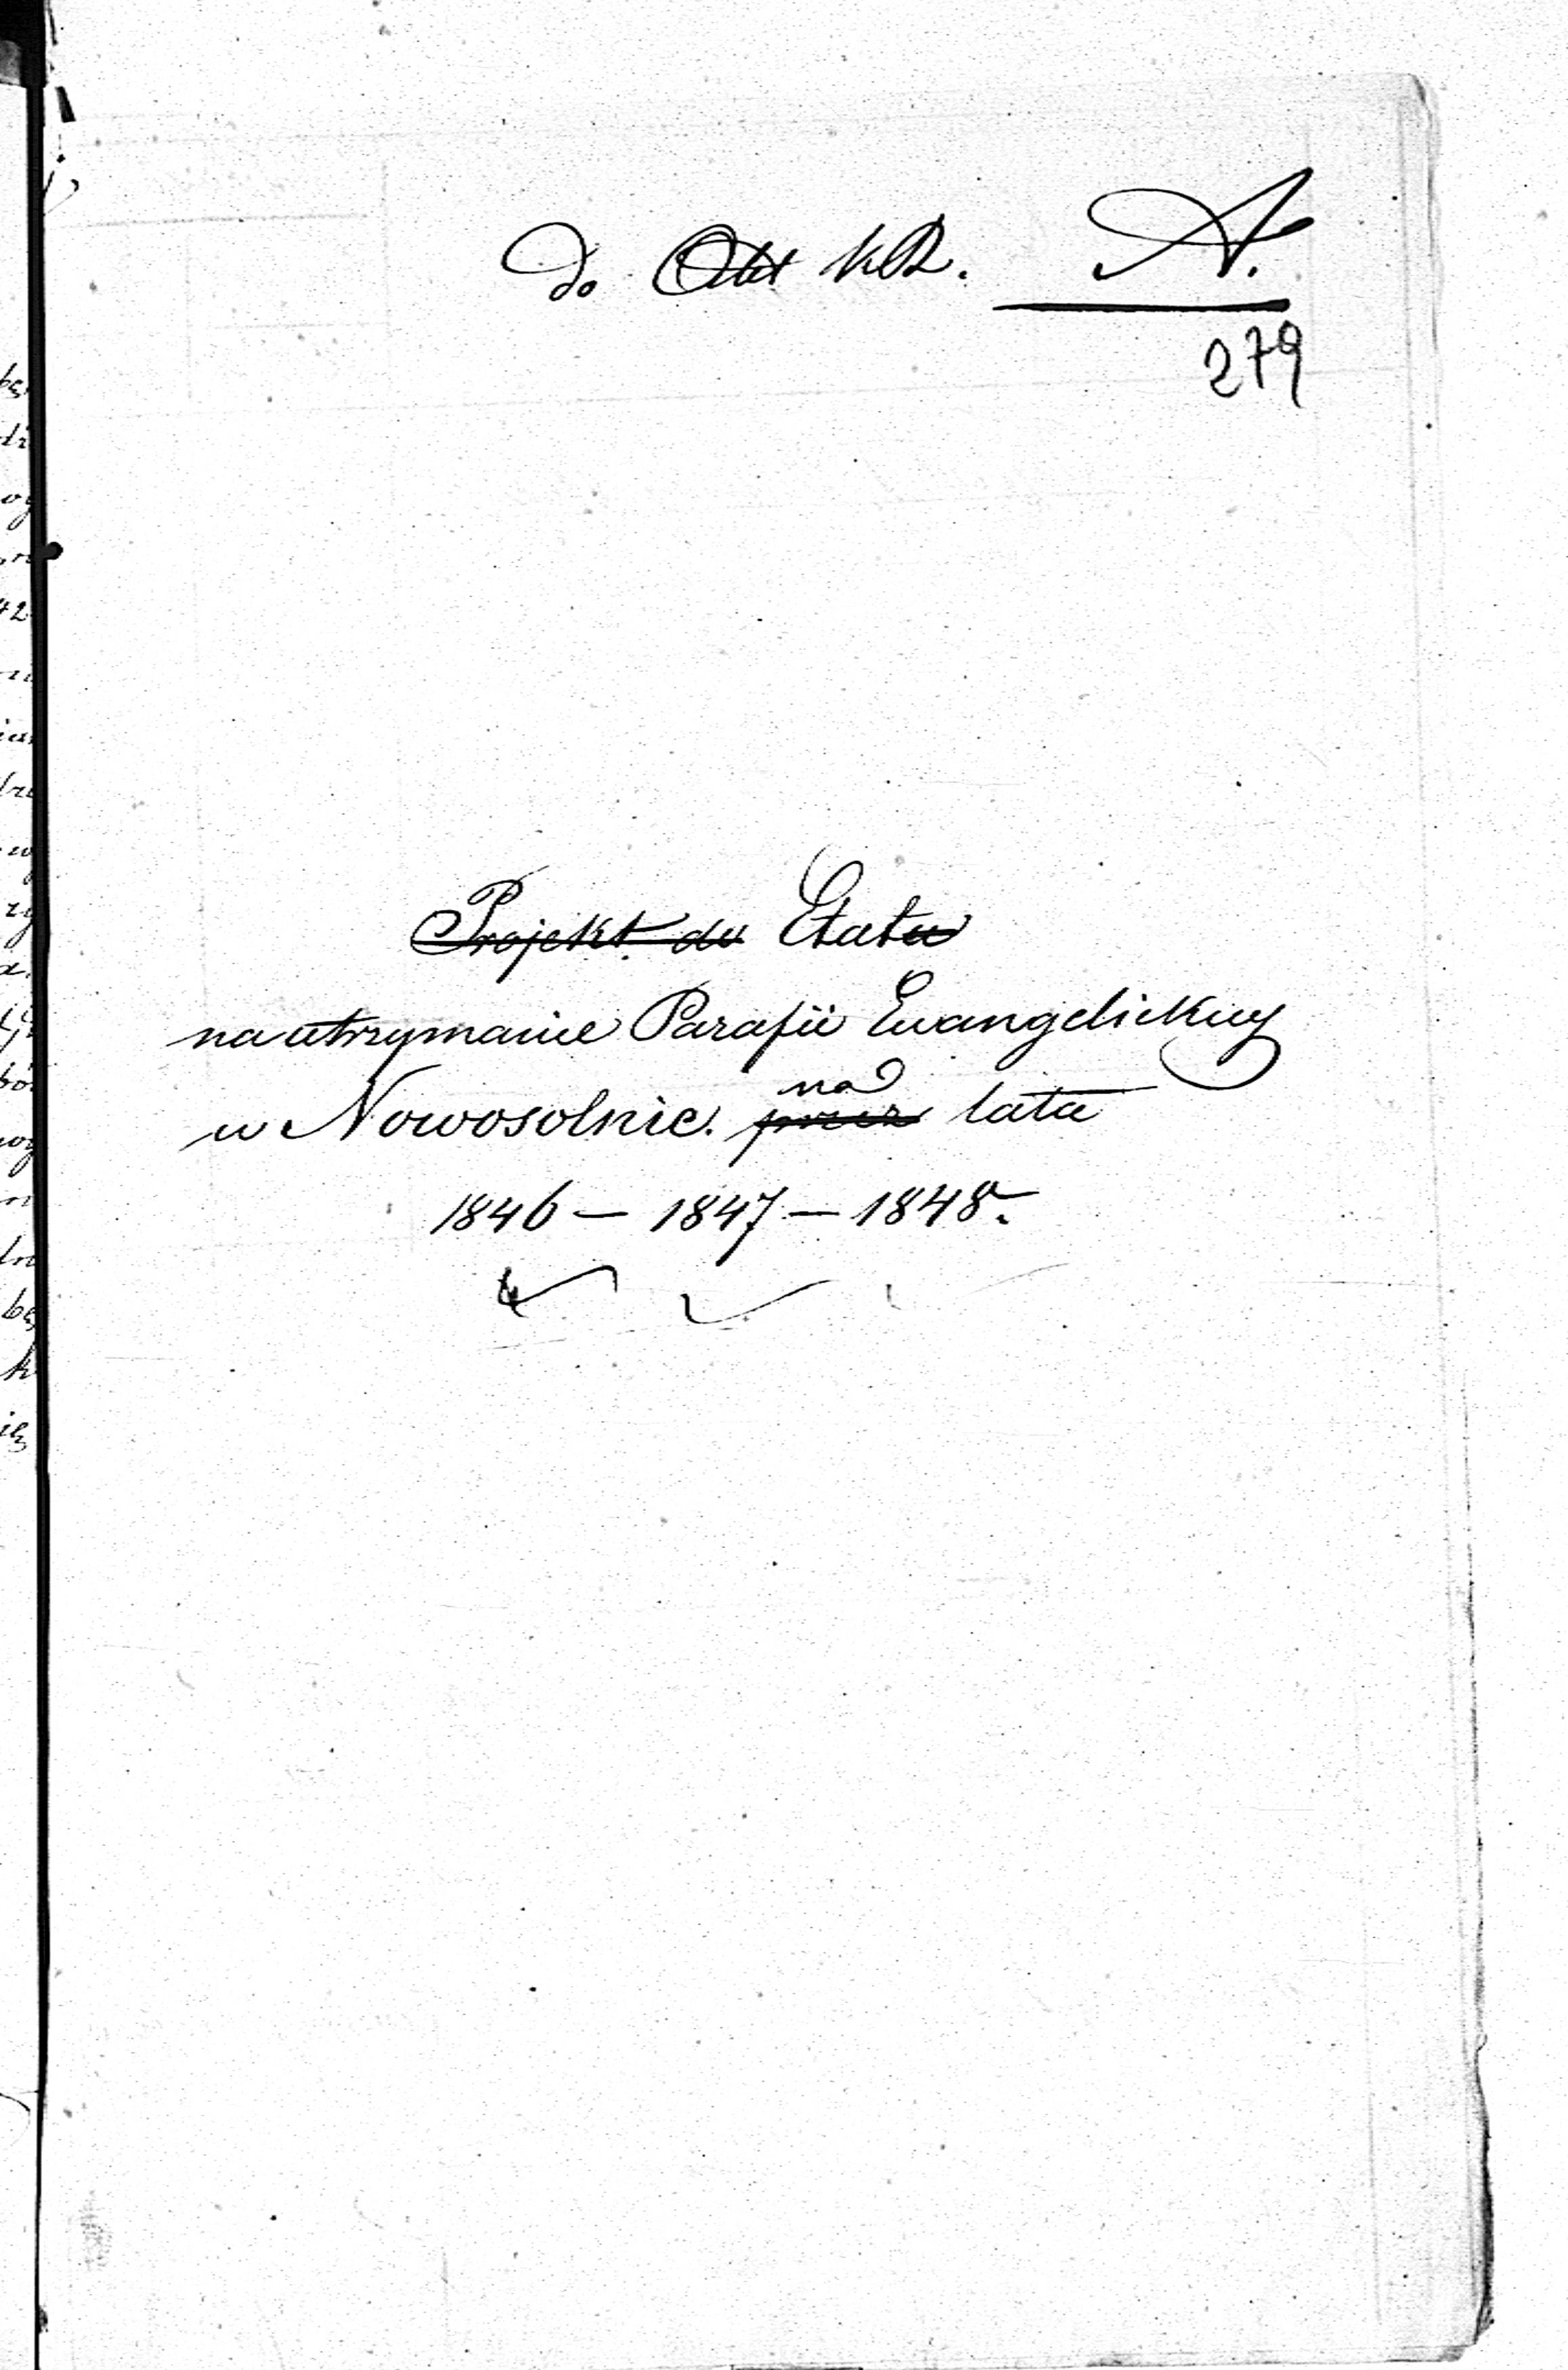 Do Akt KR. A.
279
Projekt do Etatu
na utrzymanie Parafii Ewangelickiey
w Nowosolnie. na
przez lata
1846 — 1847 — 1848.